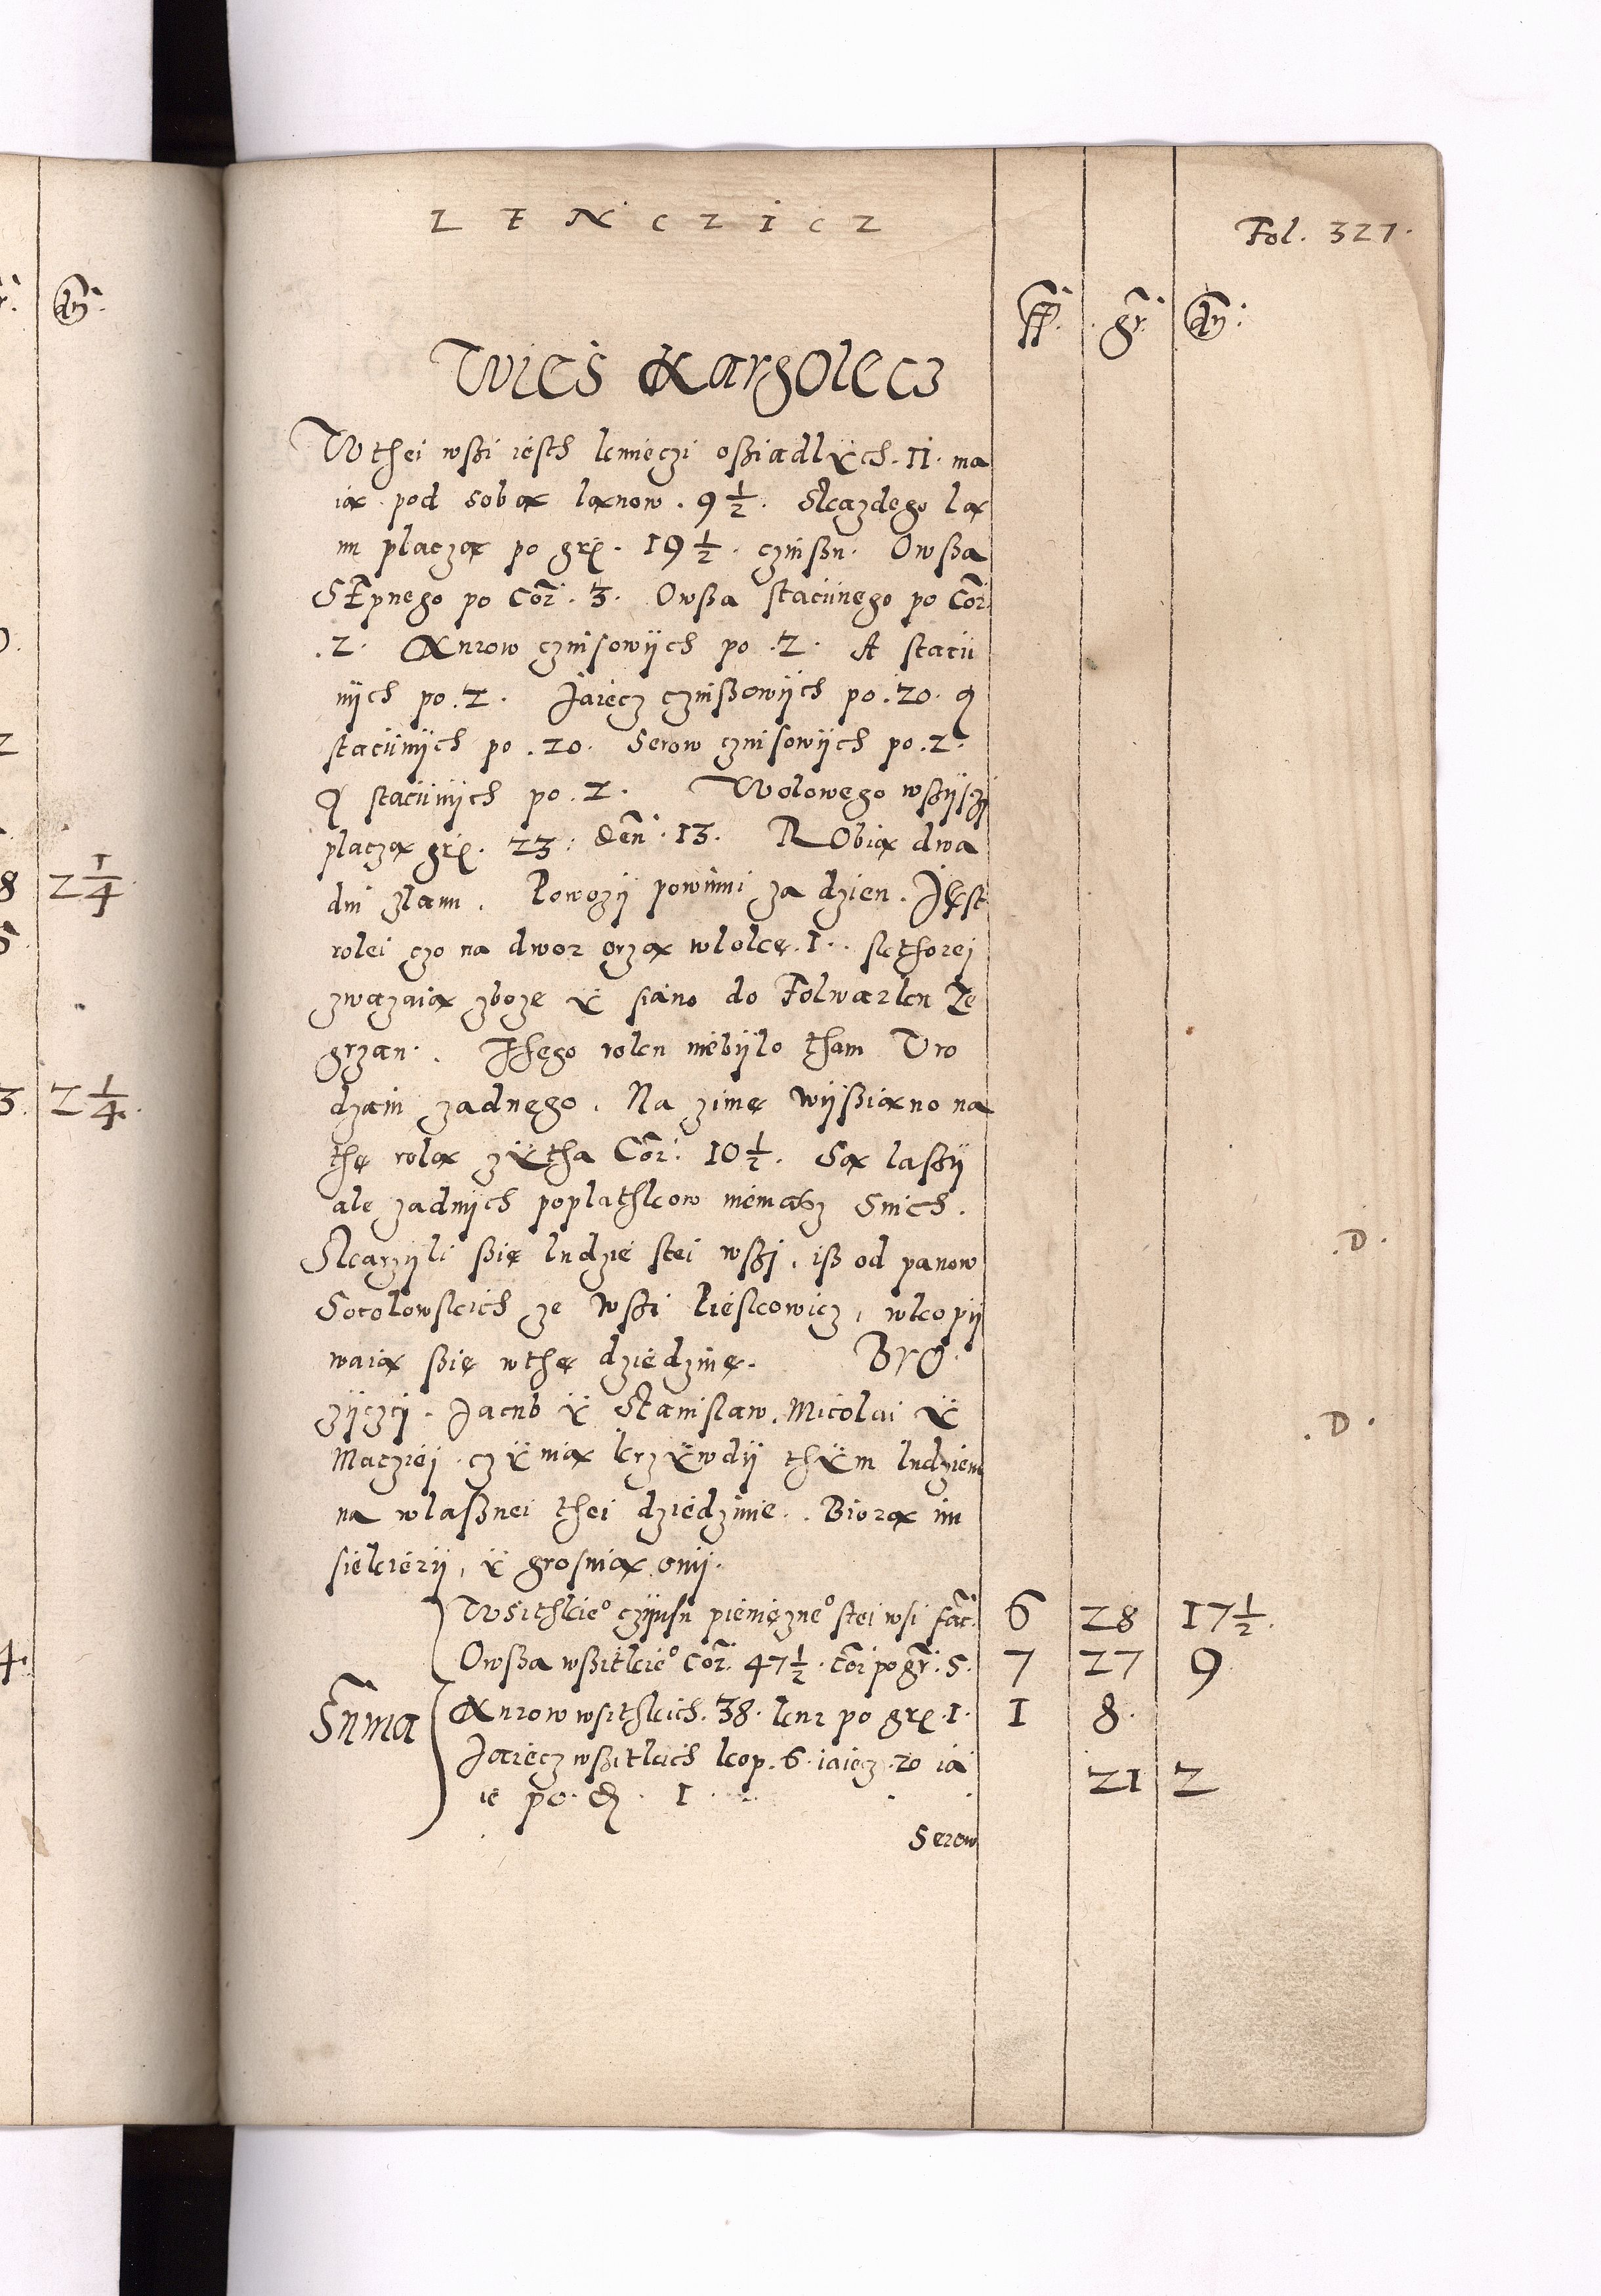 LENCZICZ
Fol. 327.
fl. gr. dn:
Wieś Kargolecz
W thei wßi iesth kmieczi oßiadlÿch . 11 . ma
ią pod sobą lanow . 9 1/2 . Skazdego la
nu placzą po grß . 19 1/2 . czinßu . Owßa
SEpnego po Cor . 3 . Owßa stacűnego po Cor.
. 2 . Kurow czinsowijch po . 2 . A stacű
nijch po . 2 . Jaiecz czinßowijch po . 20 . A
stacűnijch po . 20 . Serow czinsowijch po . 2 .
A stacűnijch po . 2 . Wolowego wßijszÿ
placzą grß . 23 . den . 13 . RObią dwa
dni zlanu . Powozij powinni za dzien . Jest
rolei czo na dwor orzą wlokę . 1 . skthorej
zwazaią zboze ÿ siano do Folwarku Ze
grzan . Thego roku niebijlo tham Uro
dzaiu zadnego . Na zimę wijßiano na
thę rolą zÿtha Cor: 10 1/2 . Są laßij
ale zadnijch poplathkow niemasz Snich .
Skarzijli ßię ludzie stei wßj , iß od panow
Socolowskich ze wßi Pieskowicz , wkopij
waią ßię wthę dziedzinę . BrO
zijczij . Jacub ÿ Stanislaw . Micolai ÿ
Macziej . czÿnią krzÿwdij thÿm ludziem
na wlaßnei thei dziedzinie . . Biorą im
siekierij , ÿ grosnią onij .
Wsithkie° czijnsu pieniężne° stei wsi fac: 6 28 17 1/2 .
Owßa wßitkie° Cor: 47 1/2 . cor po gr: 5 . 7 27 9
Suma Kurow wsithkich . 38 . kur po grß . 1 . 1 8 .
Jaiecz wßitkich kop . 6 . iaiecz . 20 ia
ie po . d . 1 . 21 2
Serow
.D.
.D.
dn:
8 2 1/4
3 . 2 1/4 .
4 .